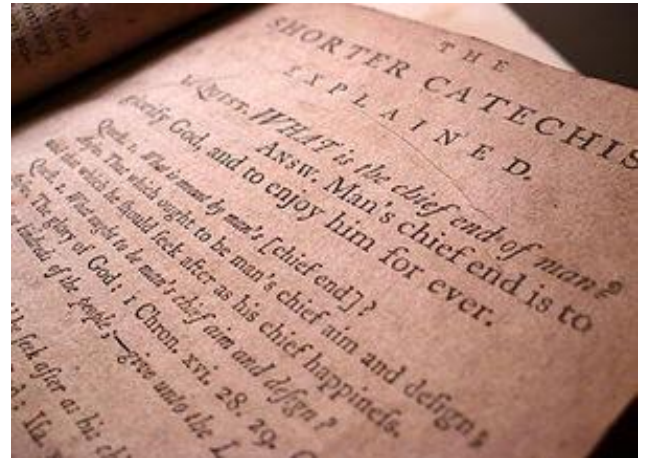 THE
SHORTER CATECHIS
EXPLAINED.
QUEST. WHAT is the chief end of man?
Answ. Man's chief end is to
glorify God, and to enjoy him for ever.
Quest. 1. What is meant by man's [chief end]?
Answ. That which ought to be man's chief aim and deſign;
and that which he ſhould ſeek after as his chief happineſs.
Queſt. 2. What ought to be man's chief aim and deſign?
Anſw. The glory of God: 1 Chron. xvi. 28. 29.
kindreds of the people,—give unto the L
ſeek after as his chi
Iſa.